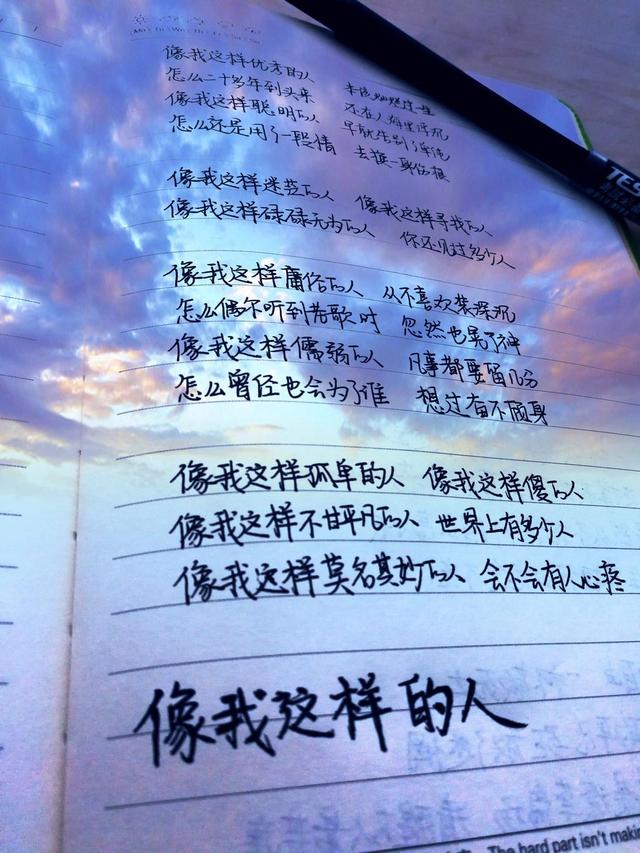 像我这样优秀的人 本该灿烂过一生
怎么二十多年到头来 还在人海里浮沉
像我这样聪明的人 早就告别了单纯
怎么还是用了一段情 去换一身伤痕
像我这样迷茫的人 像我这样寻找的人
像我这样碌碌无为的人 你还见过多少人
像我这样庸俗的人 从不喜欢装深沉
怎么偶尔听到老歌时 忽然也晃了神
像我这样懦弱的人 凡事都要留几分
怎么曾经也会为了谁 想过奋不顾身
像我这样孤单的人 像我这样傻的人
像我这样不甘平凡的人 世界上有多少人
像我这样莫名其妙的人 会不会有人心疼
像我这样的人
The hard part isn't